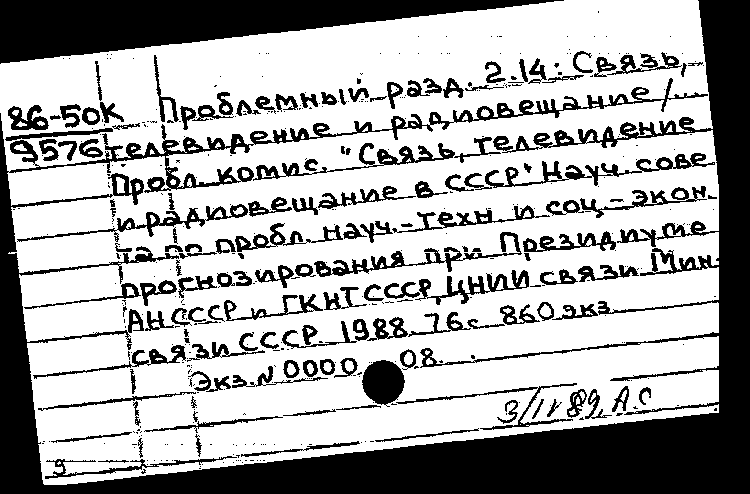 86-50К Проблемный разд. 2.14: Связь,
9576 телевидение и радиовещание /...
Пробл. комис. "Связь, телевидение
и радиовещание в СССР" Науч. сове
та по пробл. науч.-техн. и соц.-экон.
прогнозирования при Президиуме
АН СССР и ГКНТ СССР, ЦНИИ связи Мин-
связи СССР. 1988. 76с 860 экз
Экз. № 0000 08.
3/IV 89, А.С
9